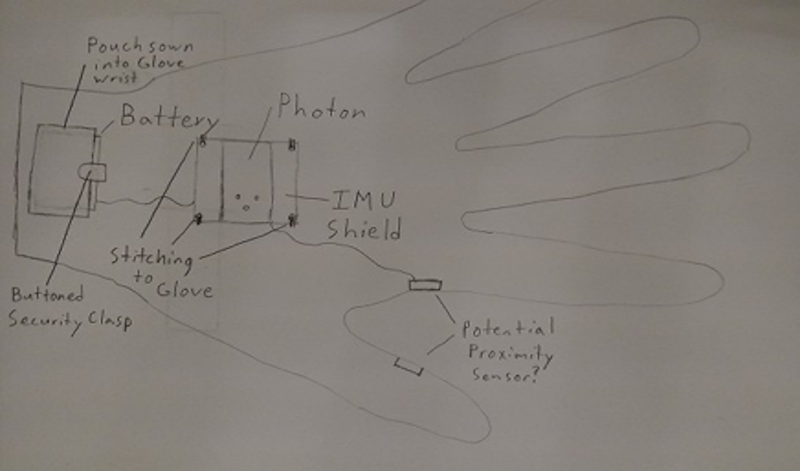 Pouch sown
into Glove
wrist
Battery
Photon
IMU
Shield
Stitching
to
Glove
Buttoned
Security Clasp
Potential
Proximity
Sensor?